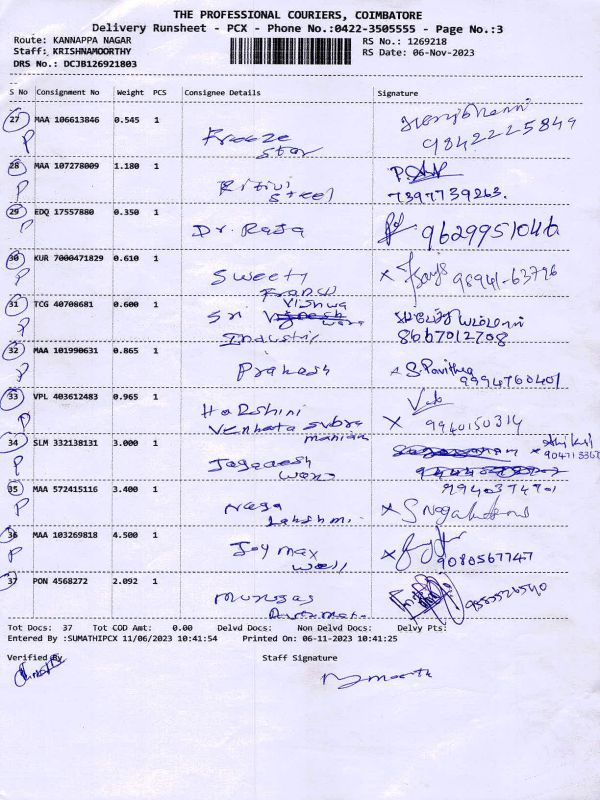 THE PROFESSIONAL COURIERS, COIMBATORE
Delivery Runsheet - PCX - Phone No.:0422-3505555 - Page No.:3
Route: KANNAPPA NAGAR RS No.: 1269218
Staff: KRISHNAMOORTHY RS Date: 06-Nov-2023
DRS No.: DCJB126921803
S No Consignment No Weight PCS Consignee Details Signature
27 MAA 106613846 0.545 1
P Freeze 9842225849
Star
28 MAA 107278009 1.180 1
P Ritivi
Steel 7397739263.
29 EDQ 17557880 0.350 1
P Dr. Raja 9629951046
30 KUR 7000471829 0.610 1
P Sweety x 98941-63796
Francis
31 TCG 40708681 0.600 1 Vishwa
P Sri
Industri 8667012708
32 MAA 101990631 0.865 1
P Prakash x S. Pavithra
9994760401
33 VPL 403612483 0.965 1
P Harshini x 9940150314
Venkata subra
manian
34 SLM 332138131 3.000 1
P Jagadesh x
35 MAA 572415116 3.400 1 9940374701
P Naga x
Lakshmi
36 MAA 103269818 4.500 1
P Joy max x 9080567747
37 PON 4568272 2.092 1
Murugas
Tot Docs: 37 Tot COD Amt: 0.00 Delvd Docs: Non Delvd Docs: Delvy Pts:
Entered By :SUMATHIPCX 11/06/2023 10:41:54 Printed On: 06-11-2023 10:41:25
Verified By Staff Signature